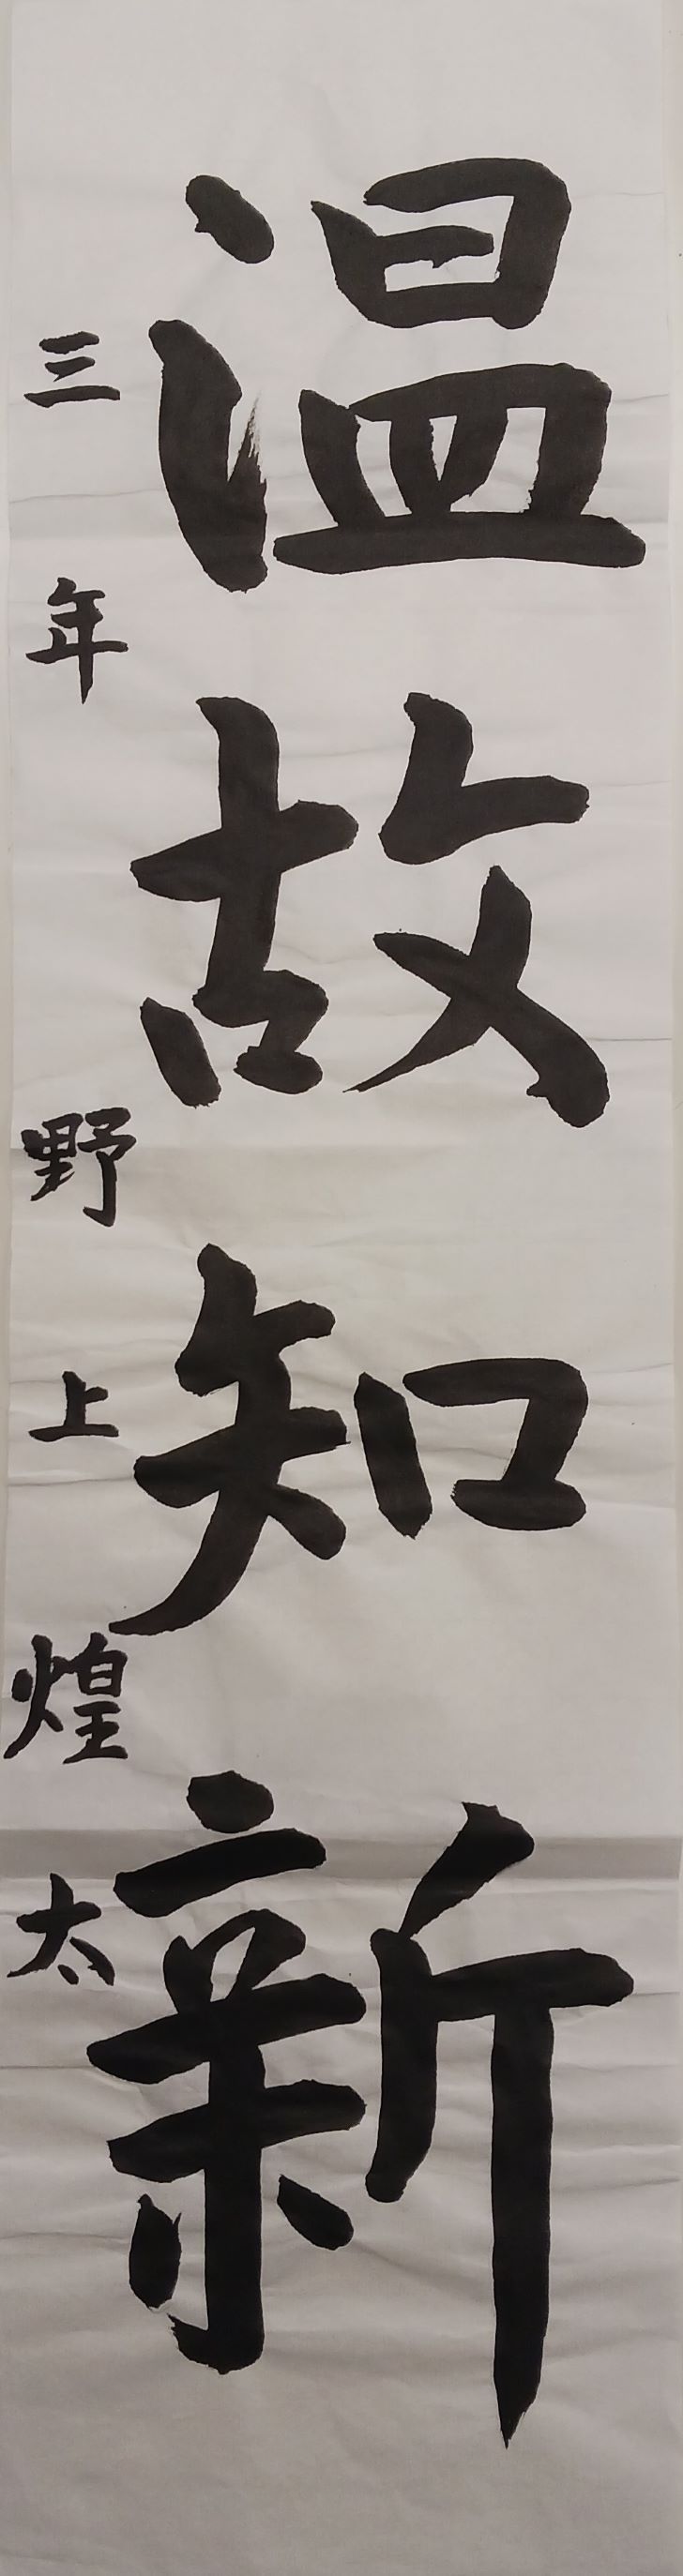 温故知新
三年 野上煌太